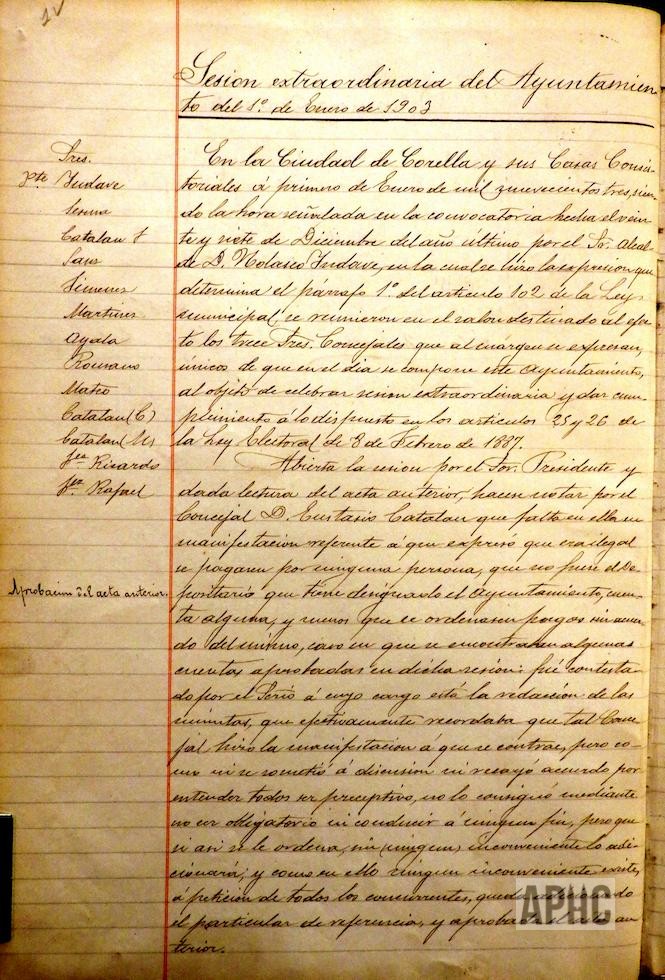 1v
Sesion extraordinaria del Ayuntamien-
to del 1º de Enero de 1903
Sres.
Pte Yudave
Sesma
Catalan E
Sanz
Jimenez
Martinez
Ayala
Romano
Mateo
Catalan (C)
Catalan (M)
Ricardo
Rafael
En la Ciudad de Corella y sus Casas Consis-
toriales á primero de Enero de mil novecientos tres, sien-
do la hora señalada en la convocatoria hecha el vein-
te y siete de Diciembre del año último por el Sr. Alcal-
de D. Nolasco Yudave, en la cual se hizo la expresion que
determina el párrafo 1º del articulo 102 de la Ley
municipal, se reunieron en el salon destinado al efec-
to los trece Sres. Concejales que al margen se expresan,
únicos de que en el dia se compone este Ayuntamiento,
al objeto de celebrar sesion extraordinaria y dar cum-
plimiento á lo dispuesto en los articulos 25 y 26 de
la Ley Electoral de 8 de Febrero de 1887.
Abierta la sesion por el Sor. Presidente y
dada lectura del acta anterior, hacen notar por el
Concejal D. Eustasio Catalan que falta en ella su
manifestacion referente á que expresó que era ilegal
se pagaren por ninguna persona, que no fuere el De-
Aprobacion del acta anterior.
positario que tiene designado el Ayuntamiento, cuen-
ta alguna, y menos que se ordenasen pagos sin acuer-
do del mismo, caso en que se encontraban algunas
cuentas aprobadas en dicha sesion: fué contesta-
do por el Srio á cuyo cargo está la redaccion de las
minutas, que efectivamente recordaba que tal Conce-
jal hizo la manifestacion á que se contrae, pero co-
mo ni se sometió á discusion ni recayó acuerdo por
entender todos ser preceptivo, no lo consignó mediante
no ser obligatorio ni conducir á ningun fin, pero que
si asi se le ordena, sin (ningun) inconveniente lo adi-
cionaria; y como en ello ningun inconveniente existe,
á peticion de todos los concurrentes, queda adicionado
el particular de referencia, y aprobada el acta an-
terior.
APHC